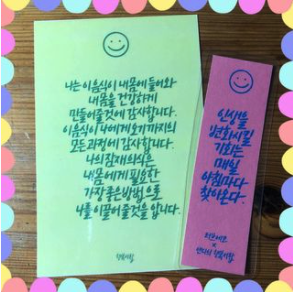 나는 이 음식이 내 몸에 들어와
내 몸을 건강하게
만들어줄 것에 감사합니다.
이 음식이 나에게 오기까지의
모든 과정에 감사합니다.
나의 잠재의식은
내 몸에게 필요한
가장 좋은 방법으로
나를 이끌어 줄 것을 압니다.
인생을
변화시킬
기회는
매일
아침마다
찾아온다